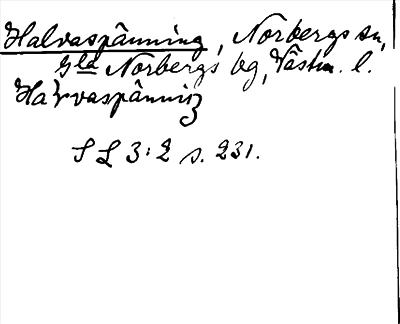 Halvaspänning, Norbergs sn,
Gla Norbergs bg, Västm. l.
Havaspänning
S L 3:2 s. 231.